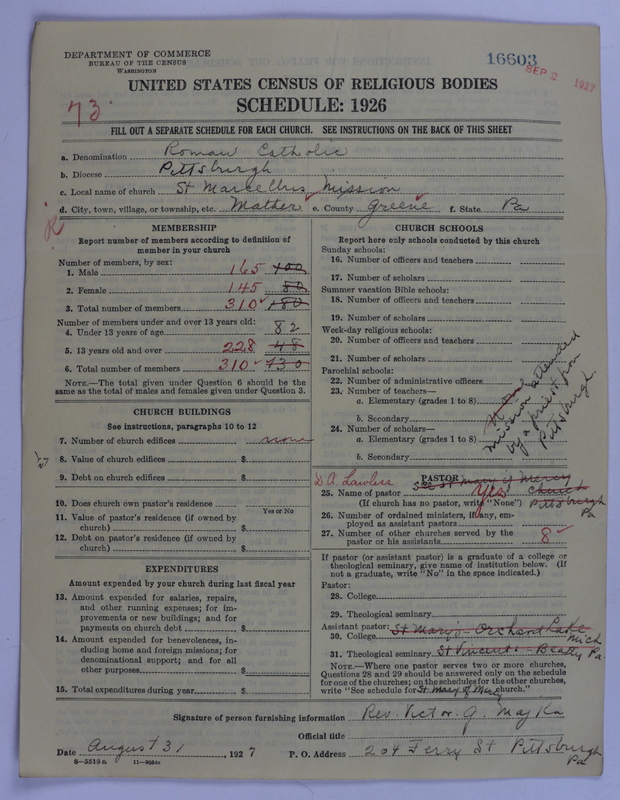 DEPARTMENT OF COMMERCE
BUREAU OF THE CENSUS
WASHINGTON
16603
SEP 2 1927
UNITED STATES CENSUS OF RELIGIOUS BODIES
SCHEDULE: 1926
73
FILL OUT A SEPARATE SCHEDULE FOR EACH CHURCH. SEE INSTRUCTIONS ON THE BACK OF THIS SHEET
a. Denomination Roman Catholic
b. Diocese Pittsburgh
c. Local name of church St Marcellus Mission
d. City, town, village, or township, etc. Mather e. County Greene f. State Pa
MEMBERSHIP
Report number of members according to definition of
member in your church
Number of members, by sex:
1. Male 165 100
2. Female 145 80
3. Total number of members 310 180
Number of members under and over 13 years old:
4. Under 13 years of age 82
5. 13 years old and over 228 48
6. Total number of members 310 130
NOTE.—The total given under Question 6 should be the
same as the total of males and females given under Question 3.
CHURCH BUILDINGS
See instructions, paragraphs 10 to 12
7. Number of church edifices none
8. Value of church edifices $
9. Debt on church edifices $
10. Does church own pastor's residence
Yes or No
11. Value of pastor's residence (if owned by
church) $
12. Debt on pastor's residence (if owned by
church) $
EXPENDITURES
Amount expended by your church during last fiscal year
13. Amount expended for salaries, repairs,
and other running expenses; for im-
provements or new buildings; and for
payments on church debt $
14. Amount expended for benevolences, in-
cluding home and foreign missions; for
denominational support; and for all
other purposes $
15. Total expenditures during year $
CHURCH SCHOOLS
Report here only schools conducted by this church
Sunday schools:
16. Number of officers and teachers
17. Number of scholars
Summer vacation Bible schools:
18. Number of officers and teachers
19. Number of scholars
Week-day religious schools:
20. Number of officers and teachers
21. Number of scholars
Parochial schools:
22. Number of administrative officers
23. Number of teachers—
a. Elementary (grades 1 to 8)
b. Secondary
24. Number of scholars—
a. Elementary (grades 1 to 8)
b. Secondary
mission attended
by a priest from
Pittsburgh
PASTOR
See St Mary of Mercy
Church
Pittsburgh
Pa
D A Lawless
25. Name of pastor yes
(If church has no pastor, write "None")
26. Number of ordained ministers, if any, em-
ployed as assistant pastors
27. Number of other churches served by the
pastor or his assistants 8
If pastor (or assistant pastor) is a graduate of a college or
theological seminary, give name of institution below. (If
not a graduate, write "No" in the space indicated.)
Pastor:
28. College
29. Theological seminary
Assistant pastor:
30. College St Mary's - Orchard Lake Mich
31. Theological seminary St Vincent's - Beatty Pa.
NOTE.—Where one pastor serves two or more churches,
Questions 28 and 29 should be answered only on the schedule
for one of the churches; on the schedules for the other churches,
write "See schedule for St Mary of Mercy church."
Signature of person furnishing information Rev. Victor. J. Majka
Official title
Date August 31, 1927 P. O. Address 204 Ferry St Pittsburgh Pa
8-5518a 11-9064c